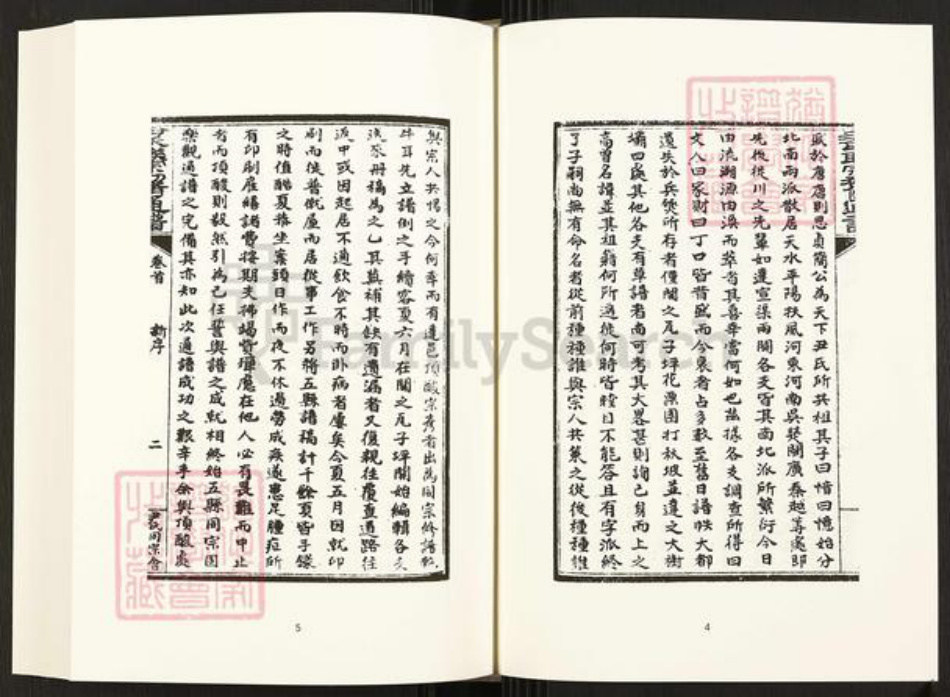 盛於唐唐則思貞簡公為天下尹氏所共祖其子曰愔曰憶始分
北南兩派散居天水平陽扶風河東河南吳楚閩廣秦越等處即
先後從川之先輩如達宣渠兩開各支皆其南北派所繁衍今日
由流溯源由渙而萃者其喜幸當何如也茲據各支調查所得曰
文人曰家財曰丁口皆昔盛而今衰者占多數至舊日譜帙大都
遺失於兵燹所存者僅開之瓦子坪花潭園打秋坡並達之大樹
壩四處其他各支有草譜者尚可考其大畧甚則詢己身而上之
高曾名諱並其祖籍何所遷徙何時皆瞠目不能答且有字派終
了子嗣尚無有命名者從前種種誰與宗人共策之從後種種誰
與宗人共惕之今何幸而有達邑頂酸宗秀者出為同宗終譜
牛耳先立譜例之手續客夏六月在開之瓦子坪開始編輯各支
淺冢冊稿為之乙其誤補其缺有遺漏者又復親往覆查道路往
返中或因起居不適飲食不時而卧病者屢矣今夏五月因就印
刷而徙普僦屋而居從事工作另將五縣譜稿計千餘頁皆手錄
之時值酷夏恭坐案頭日作而夜不休過勞成疾遂患足腫症所
有印刷雇繕諸費按期支拂場貲瑣屑在他人必有畏難而中止
者而頂酸則毅然引為己任誓與譜之成就相終始五縣同宗閱
樂觀通譜之完備其亦知此次通譜成功之艱辛乎余與頂酸處
卷首
新序
二
尹氏同宗會
5
4
FamilySearch